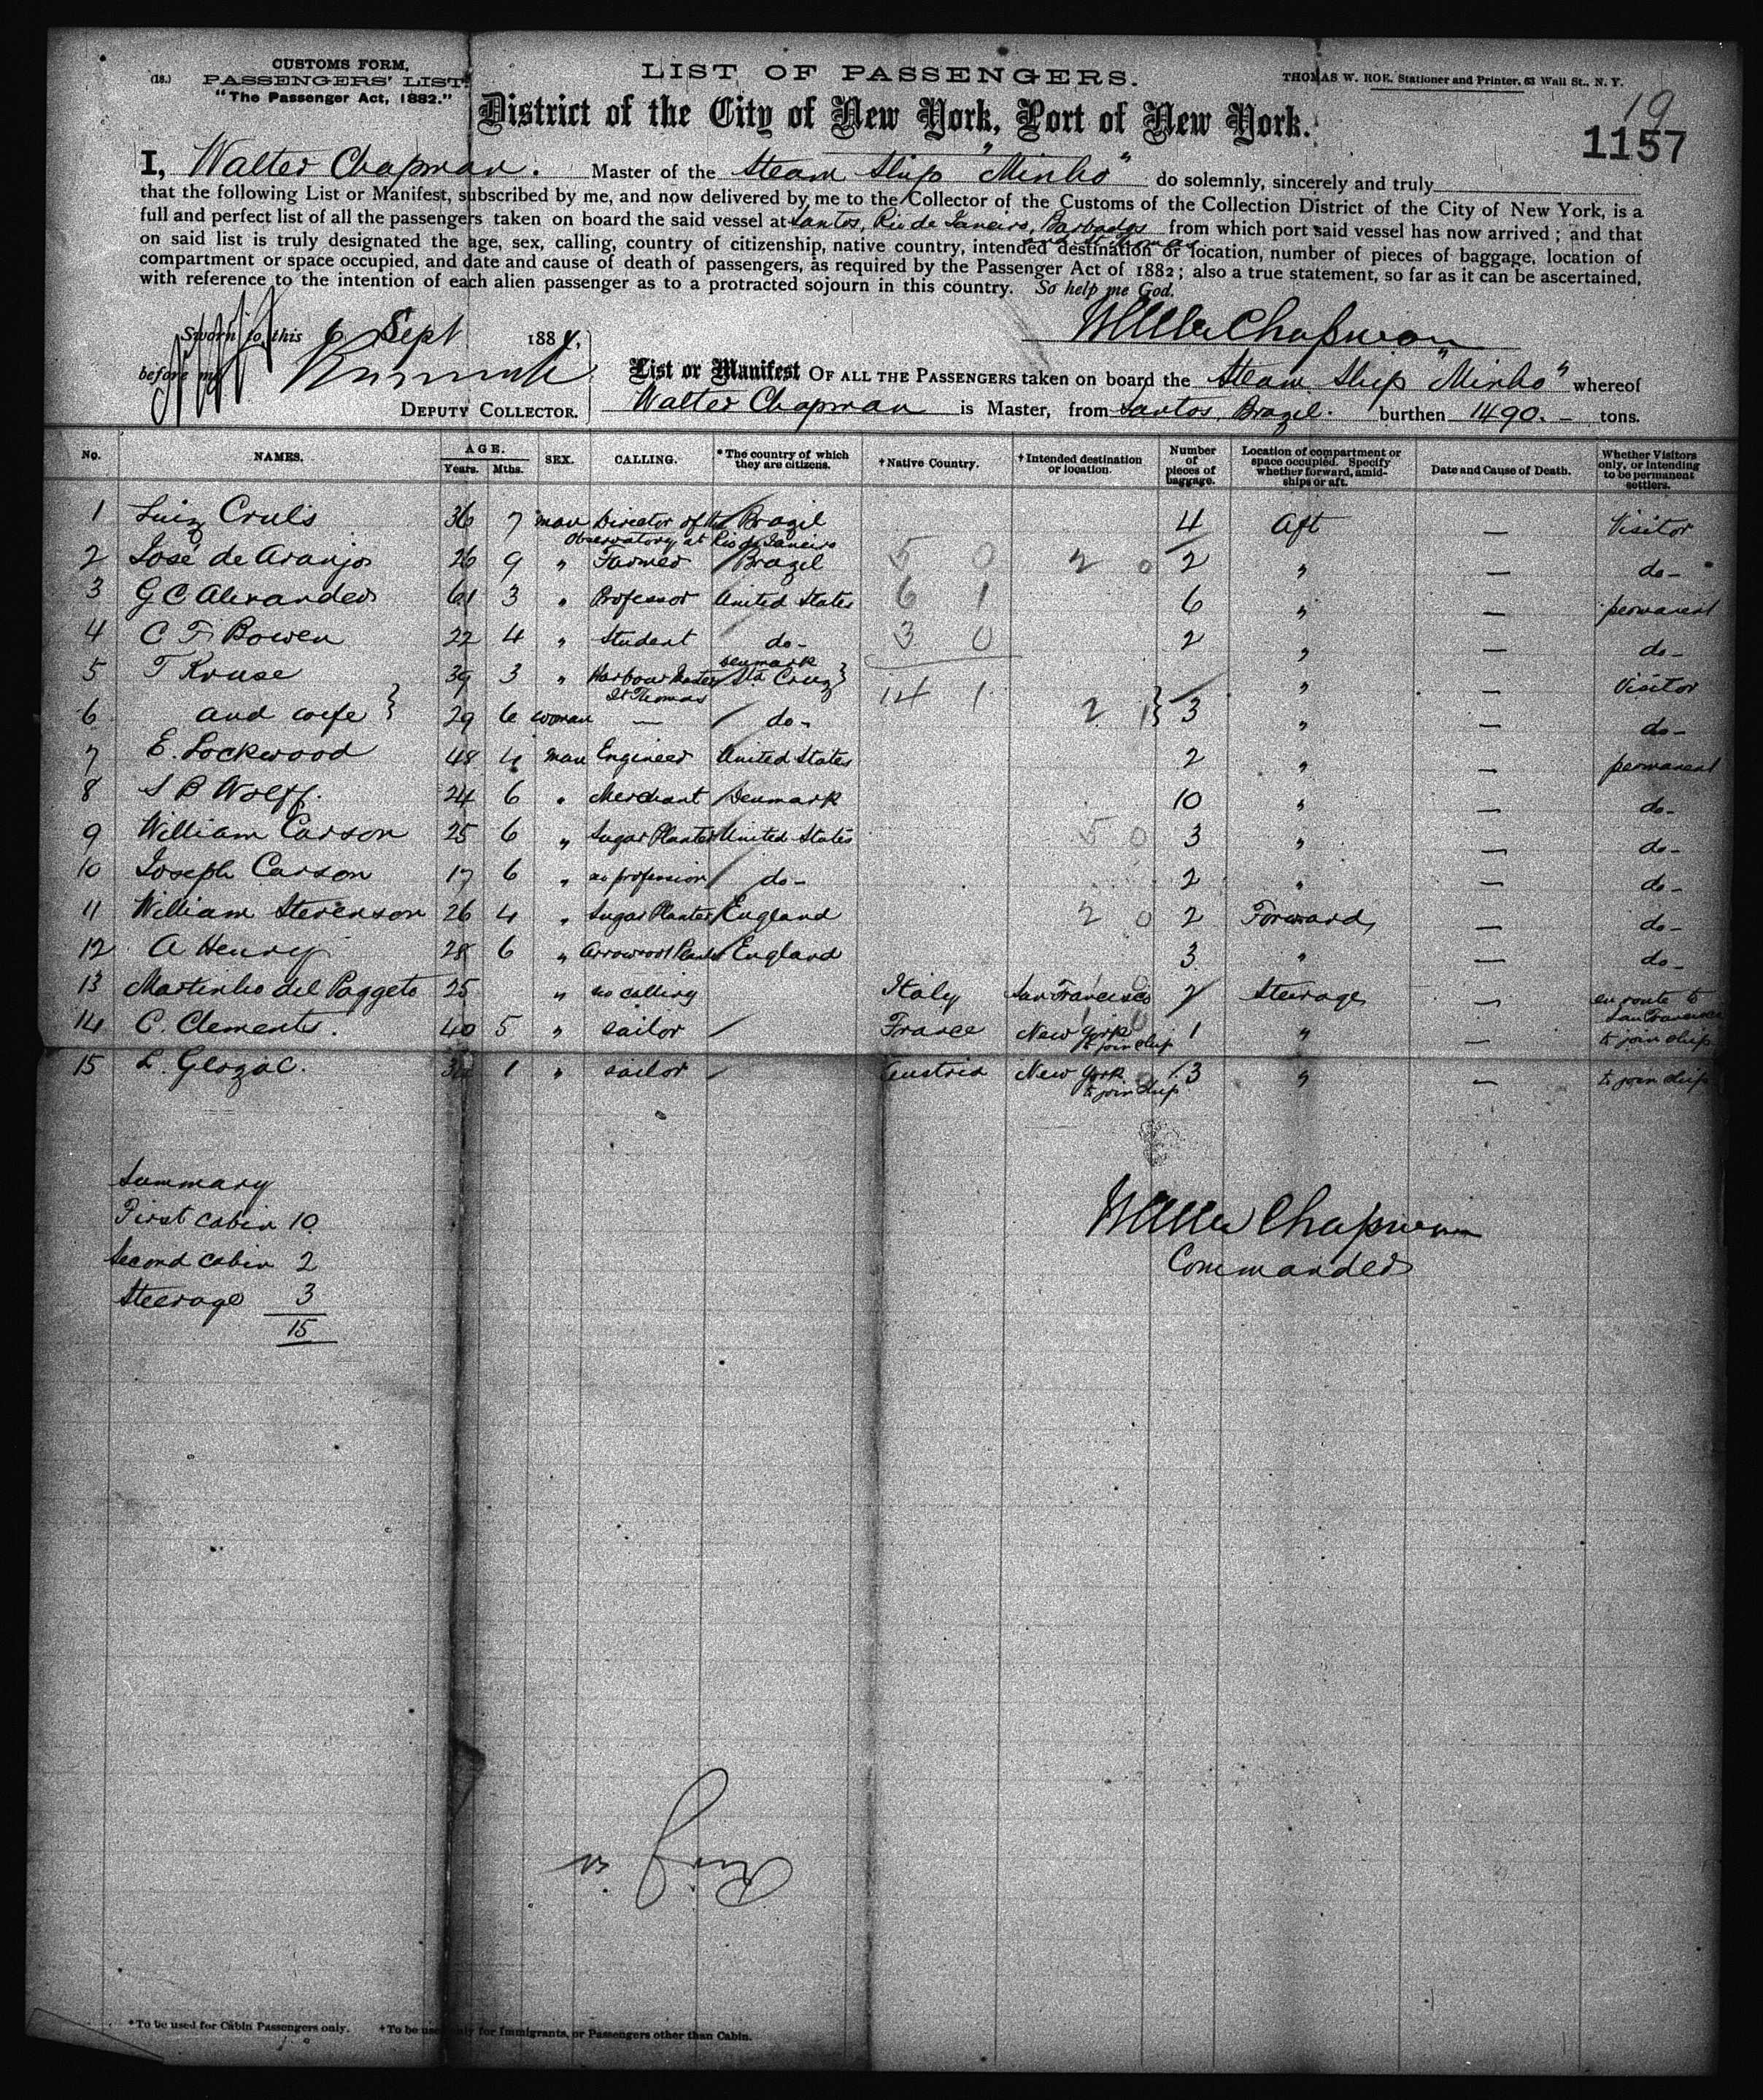 CUSTOMS FORM.
(18.) PASSENGERS' LIST.
"The Passenger Act, 1882."
LIST OF PASSENGERS.
THOMAS W. ROE, Stationer and Printer, 63 Wall St., N. Y.
District of the City of New York, Port of New York.
19
1157
I, Walter Chapman. Master of the Steam Ship "Minho" do solemnly, sincerely and truly
that the following List or Manifest, subscribed by me, and now delivered by me to the Collector of the Customs of the Collection District of the City of New York, is a
full and perfect list of all the passengers taken on board the said vessel at Santos, Rio de Janeiro, Barbados from which port said vessel has now arrived; and that
on said list is truly designated the age, sex, calling, country of citizenship, native country, intended destination or location, number of pieces of baggage, location of
compartment or space occupied, and date and cause of death of passengers, as required by the Passenger Act of 1882; also a true statement, so far as it can be ascertained,
with reference to the intention of each alien passenger as to a protracted sojourn in this country. So help me God.
Sworn to this 6 Sept 1884,
Walter Chapman
before me
DEPUTY COLLECTOR.
List or Manifest OF ALL THE PASSENGERS taken on board the Steam Ship "Minho" whereof
Walter Chapman is Master, from Santos Brazil. burthen 1490. - tons.
No. NAMES. AGE. Years. Mths. SEX. CALLING. *The country of which they are citizens. †Native Country. †Intended destination or location. Number of pieces of baggage. Location of compartment or space occupied. Specify whether forward, amidships or aft. Date and Cause of Death. Whether Visitors only, or intending to be permanent settlers.
1 Luiz Cruls 36 7 man Director of the Observatory at Rio de Janeiro Brazil 4 Aft — Visitor
2 José de Araujo 26 9 " Farmer Brazil 5 0 2 0 2 " — do-
3 G C Alexander 61 3 " Professor United States 6 1 6 " — permanent
4 C F Bowen 22 4 " Student do- 3 0 2 " — do-
5 T Kruse 39 3 " Harbour Master St Thomas Denmark Sta Cruz } 14 1 " — Visitor
6 and wife } 29 6 woman — do- 2 1 } 3 " — do-
7 E. Lockwood 48 4 man Engineer United States 2 " — permanent
8 S B Wolff. 24 6 " Merchant Denmark 10 " — do-
9 William Carson 25 6 " Sugar Planter United States 5 0 3 " — do-
10 Joseph Carson 17 6 " no profession do- 2 " — do-
11 William Stevenson 26 4 " Sugar Planter England 2 0 2 Forward — do-
12 A Henry 28 6 " Arrowroot Planter England 3 " — do-
13 Martinho del Paggeto 25 " no calling Italy San Francisco 2 Steerage — en route to San Francisco
14 C. Clements. 40 5 " sailor France New York to join ship 1 " — to join ship
15 L. Glozac. 1 " sailor Austria New York to join ship 3 " — to join ship
Summary
First cabin 10
Second cabin 2
Steerage 3
15
Walter Chapman
Commander
*To be used for Cabin Passengers only. †To be used only for Immigrants, or Passengers other than Cabin.